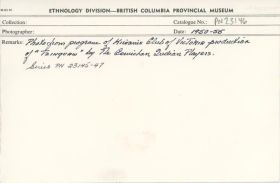 ETHNOLOGY DIVISION—BRITISH COLUMBIA PROVINCIAL MUSEUM
Collection: Catalogue No.: PN23146
Photographer: Date: 1950-55
Remarks: Photo from program of Kiwanis Club of Victoria production
of " " by The Cowichan Indian Players.
Series PN 23145-47